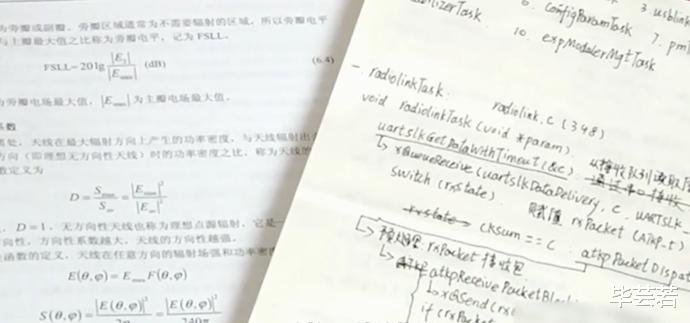 为旁瓣或副瓣。旁瓣区域通常为不需要辐射的区域,所以旁瓣电平
与主瓣最大值之比称为旁瓣电平,记为 FSLL。
FSLL=20lg |E₁| / |Emax| (dB) (6.4)
为旁瓣电场最大值,|Emax| 为主瓣电场最大值。
系数
离处,天线在最大辐射方向上产生的功率密度,与天线辐射出
方向(即理想无方向性天线)时的功率密度之比,称为天线的
数定义为
D = Smax / Sav = |Emax|² / |Eav|²
,D=1,无方向性天线也称为理想点源辐射,它是
向性,方向性系数越大,天线的方向性越强。
性函数的定义,天线在任意方向的辐射场强和功率密度
E(θ,φ) = Emax F(θ,φ)
S(θ,φ) = |E(θ,φ)|² = |E(θ,φ)|²
240π
bilizerTask 6. configParamTask 7. pm
3. usblink
10. expModulerMgtTask
- radiolinkTask. radiolink.c (348)
void radiolinkTask (void *param)
uartslkGetDataWithTimeout (&c) 从接收队列读取
↳ xQueueReceive (uartslkDataDelivery, c, UARTSLK_
switch (rxState) 赋值 rxPacket (Atkp_t)
rxstate cksum == c. atkpPacketDispat
↳ 预处理 rxPacket 接收包
↳ atkpReceivePacketBlo
↳ xQSend (rx
if (rxPacket
毕芸若